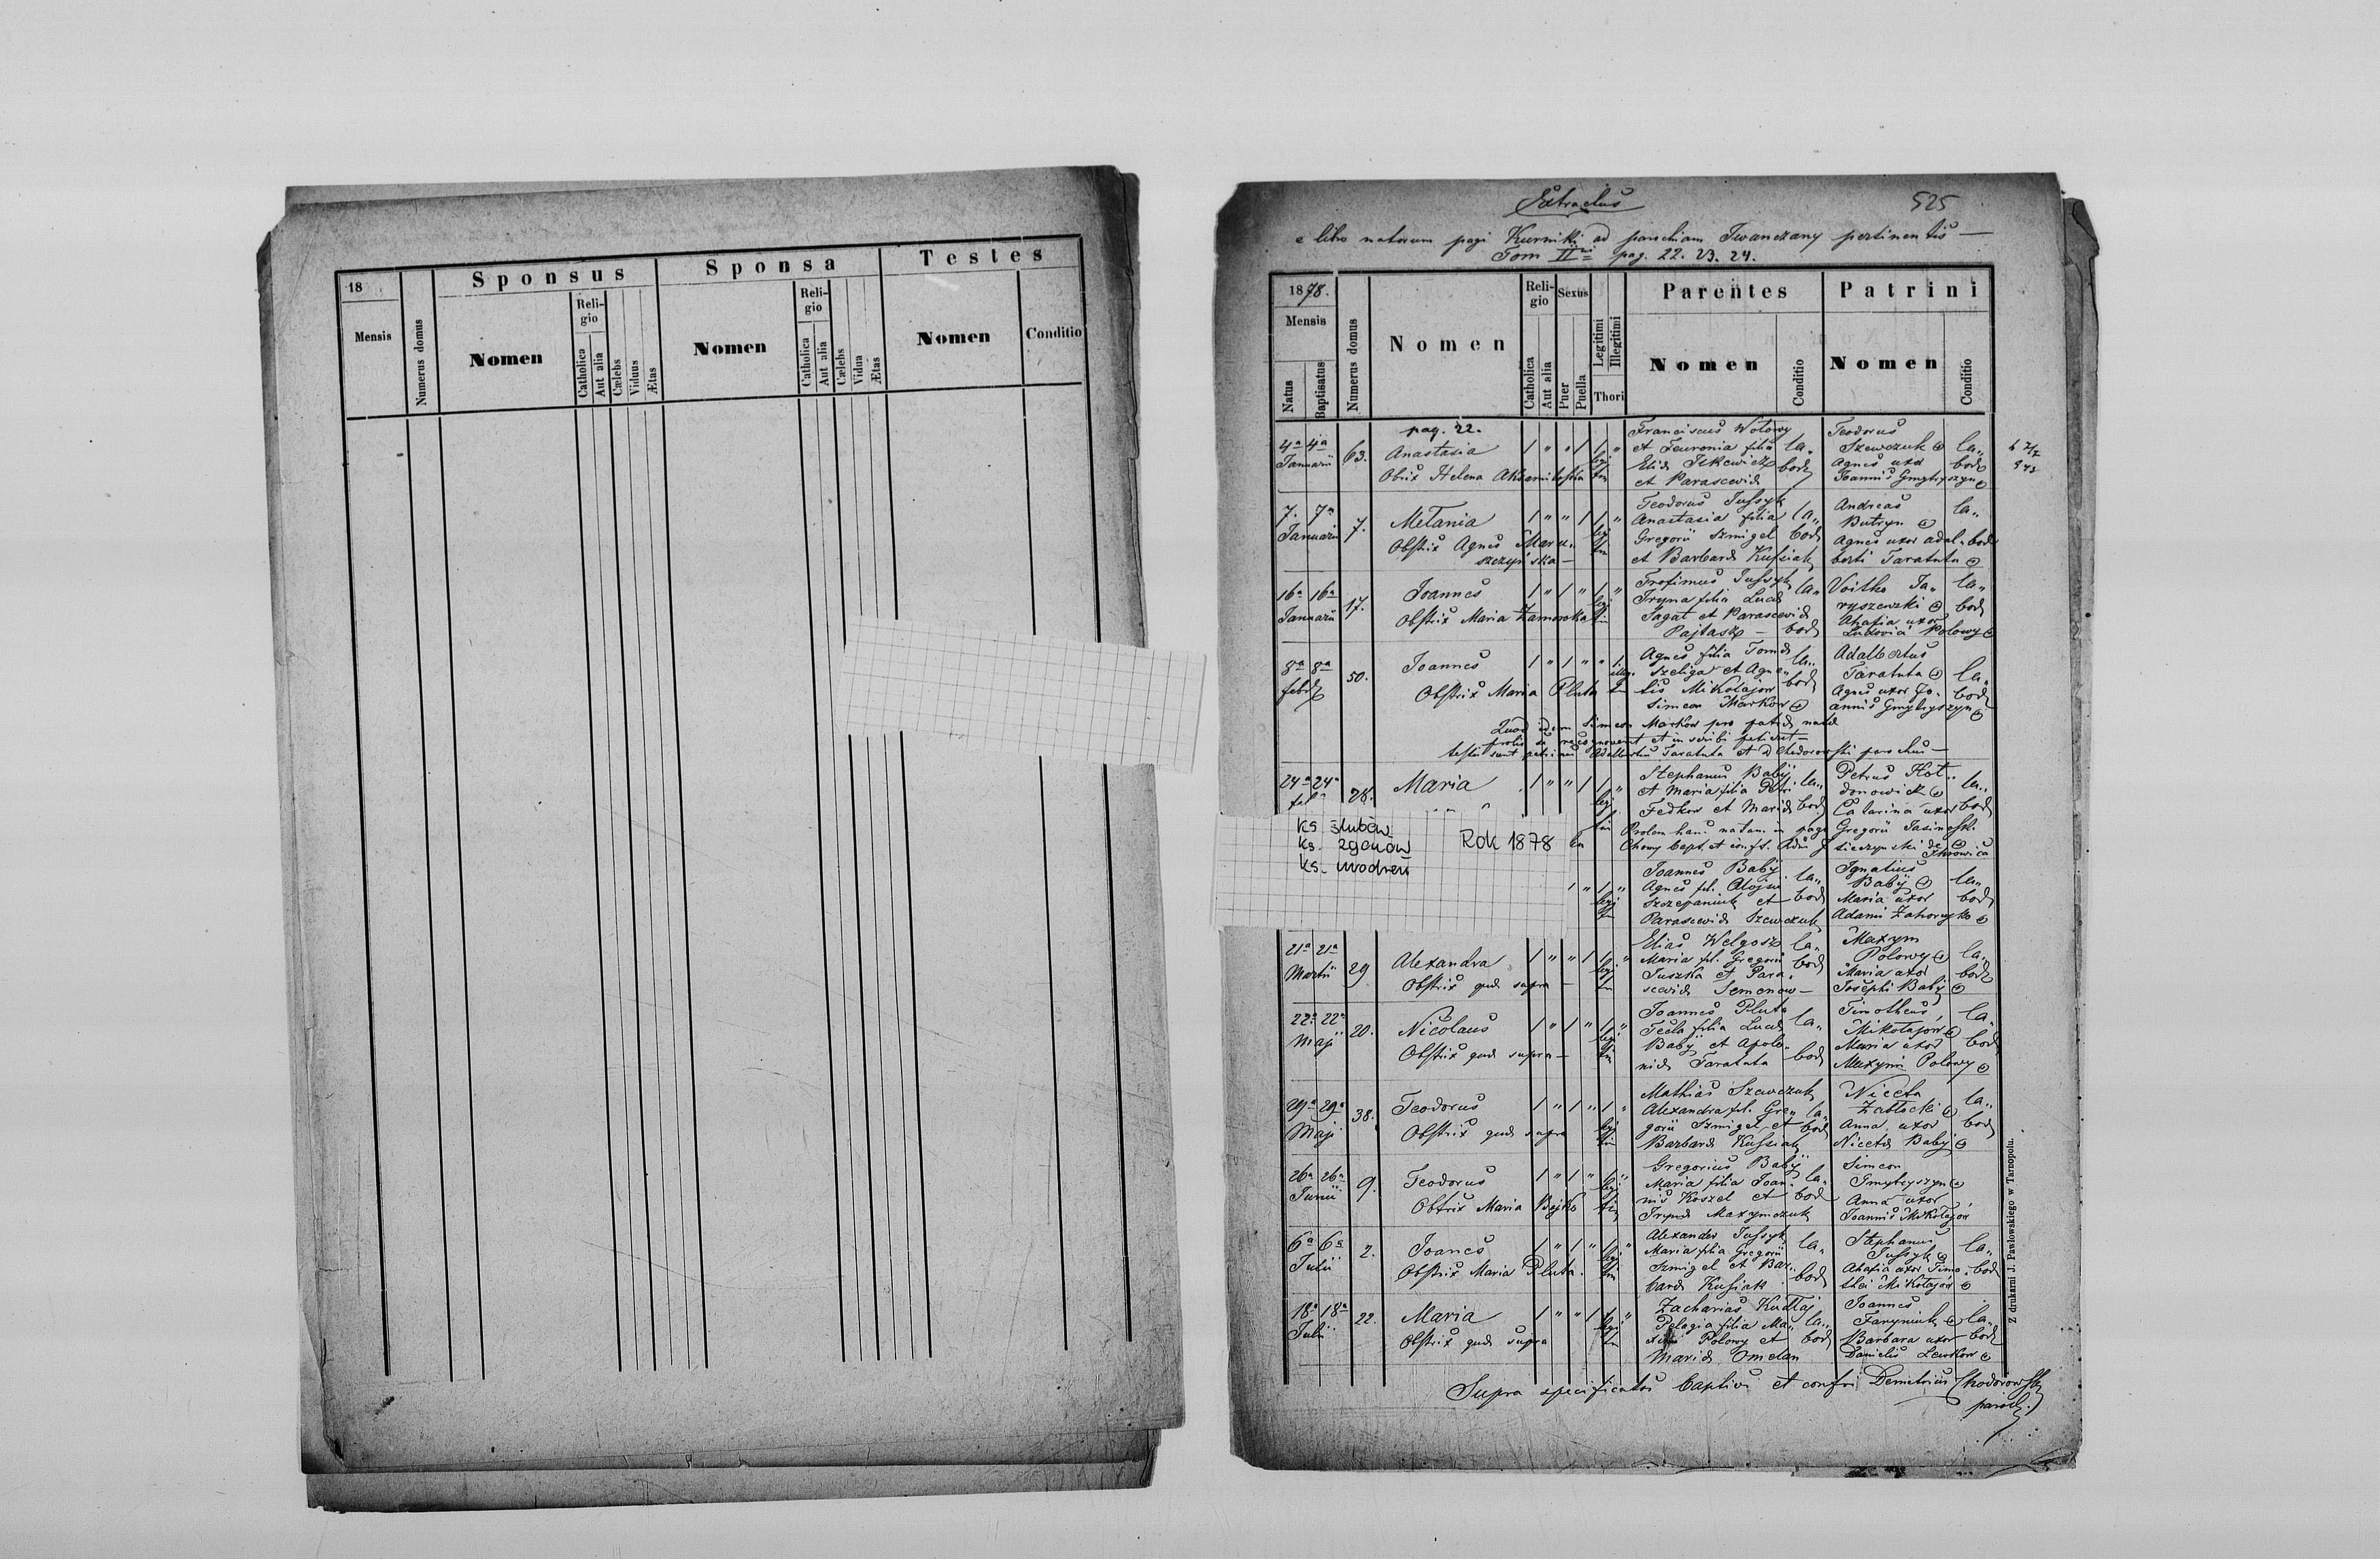 18
Mensis
Numerus domus
Sponsus
Nomen
Religio
Catholica
Aut alia
Cælebs
Viduus
Ætas
Sponsa
Nomen
Religio
Catholica
Aut alia
Cælebs
Vidua
Ætas
Testes
Nomen
Conditio
Extractus
525
e libro natorum pagi Kurniki ad parochiam Iwanczany pertinentis —
Tom II pag. 22. 23. 24.
1878.
Mensis
Natus
Baptisatus
Numerus domus
Nomen
Religio
Catholica
Aut alia
Sexus
Puer
Puella
Legitimi
Illegitimi
Thori
Parentes
Nomen
Conditio
Patrini
Nomen
Conditio
pag. 22.
4a 4a
Januarii
63.
Anastasia
Franciscus Wołowy
et Feuronia filia
Eliæ Ilkewicz
et Parascevia
la„
bor
Teodorus
Szewczuk
Agnes uxor
Joannis Gmytryszyn
la„
bor
7. 7a
Januarii
7.
Melania
Obstrix Agnes Maru„
szczyńska —
Teodorus Jussyk
Anastasia filia
Gregorii Szmigel
et Barbaræ Kussiak
la„
bor
Andreas
Butryn
Agnes uxor Adal„
berti Taratuta
la„
bor
16a 16a
Januarii
17.
Joannes
Obstrix Maria Zamorska
Trofimus Jussyk
Iryna filia Lucæ
Sagat et Parasceviæ
Pajtasz —
la„
bor
Voitko Ja„
ryszewski
Ahafia uxor
Ludovici Polowy
la„
bor
8a 8a
febr
50.
Joannes
Obstrix Maria Pluta
Agnes filia Tomæ
Szeliga et Agne„
tis Mikołajow
Simeon Markow
la„
bor
Adalbertus
Taratuta
Agnes uxor Jo„
annis Gmytryszyn
la„
bor
Quod idem Simeon Markow pro patre natæ
prolis se recognoverit et inscribi petierit —
testes sunt patrini Adalbertus Taratuta et D Chodorowski parochus —
24a 24a
feb
28.
Maria
Stephanus Babÿ
et Maria filia Petri
Fedkow et Mariæ
la„
bor
Petrus Hot„
donowicz
Catarina uxor
Gregorii Jasinski
la„
bor
Prolem hanc natam in pago
Ks. ślubów
Ks. zgonów
Ks. urodzeń
Rok 1878
Joannes Babÿ
Agnes fil. Aloysii
Szczepaniuk et
Parasceviæ Szewczuk
la„
bor
Ignatius
Babÿ
Maria uxor
Adami Zahorujko
la„
bor
21a 21a
Martii
29
Alexandra
Obstrix quæ supra —
Elias Welgosz
Maria fil. Gregorii
Juszka et Para„
sceviæ Semenow —
la„
bor
Maxym
Polowy
Maria uxor
Josephi Babÿ
la„
bor
22a 22a
Maji
20.
Nicolaus
Obstrix quæ supra —
Joannes Pluta
Tecla filia Lucæ
Babÿ et Apolo„
niæ Taratuta
la„
bor
Timotheus
Mikołajow
Maria uxor
Maxymi Polowy
la„
bor
29a 29a
Maji
38.
Teodorus
Obstrix quæ supra
Mathias Szewczuk
Alexandra fil. Gre„
gorii Szmigel et
Barbaræ Kussiak
la„
bor
Niceta
Zabłocki
Anna uxor
Nicetæ Babÿ
la„
bor
26a 26a
Junii
9.
Teodorus
Obtrix Maria Bojko
Gregorius Babÿ
Maria filia Joan„
nis Koszel et
Irynæ Maxymczuk
la„
bor
Simeon
Gmytryszyn
Anna uxor
Joannis Mikołajow
6a 6a
Julii
2.
Joanes
Obstrix Maria Pluta.
Alexander Jussyk
Maria filia Gregorii
Szmigel et Bar„
baræ Kussiak
la„
bor
Stephanus
Jussyk
Ahafia uxor Timo„
thei Mikołajow
la„
bor
18a 18a
Julii
22.
Maria
Obstrix quæ supra
Zacharias Kudłaj
Pelagia filia Ma„
Polowy et
Mariæ Omelan
la„
bor
Joannes
Faryniuk
Barbara uxor
Danielis Lewkow
la„
bor
Supra specificatos baptisavi et confir Demetrius Chodorowski
paroch.
Z drukarni J. Pawłowskiego w Tarnopolu.